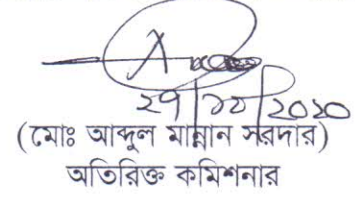 ২৭/১০/২০২০
(মোঃ আব্দুল মান্নান সরদার)
অতিরিক্ত কমিশনার